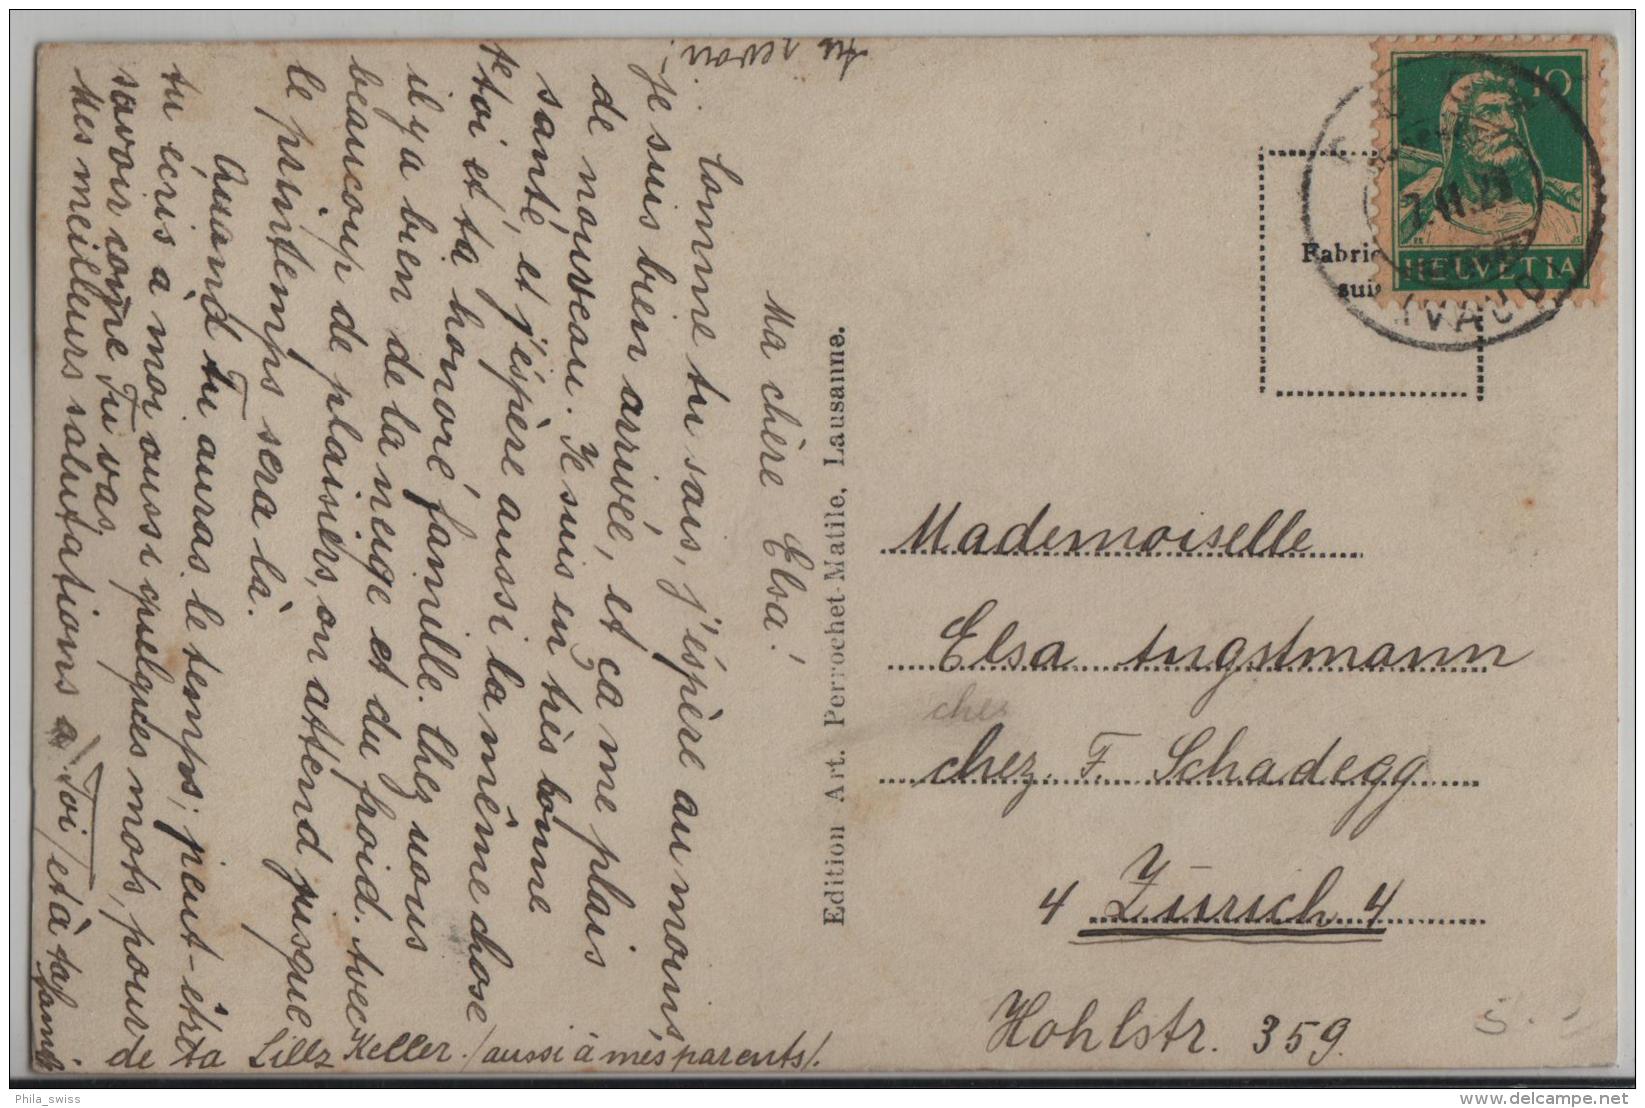 Ma chère Elsa!
Comme tu sais, j'éspère au moins,
je suis bien arrivée, et ça me plais
de nouveau. Je suis en très bonne
santé, et j'éspère aussi la même chose
de toi et ta honoré famille. Chez nous
il y a bien de la neige et du froid. Avec
beaucoup de plaisiers, on attend jusque
le printemps sera là.
Quand tu auras le temps, peut-être
tu écris à moi aussi quelques mots, pour
savoir comme Tu vas.
Mes meilleurs salutations à Toi/et à ta famil
de ta Lilly Keller. /aussi à mes parents/.
tu revoir!
Edition Art. Perrochet-Matile, Lausanne.
Fabric
suis
10
HELVETIA
(VAUD)
Mademoiselle
Elsa Angstmann
chez
chez F. Schadegg
4 Zürich 4
Hohlstr. 359.
S.
Phila_swiss
www.delcampe.net